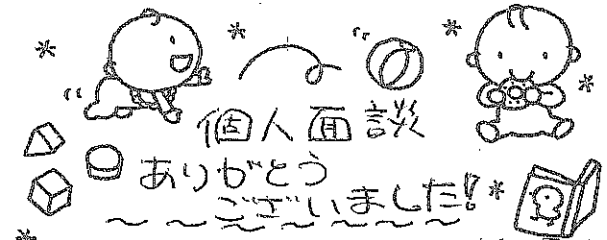 個人面談
ありがとう
ございました!